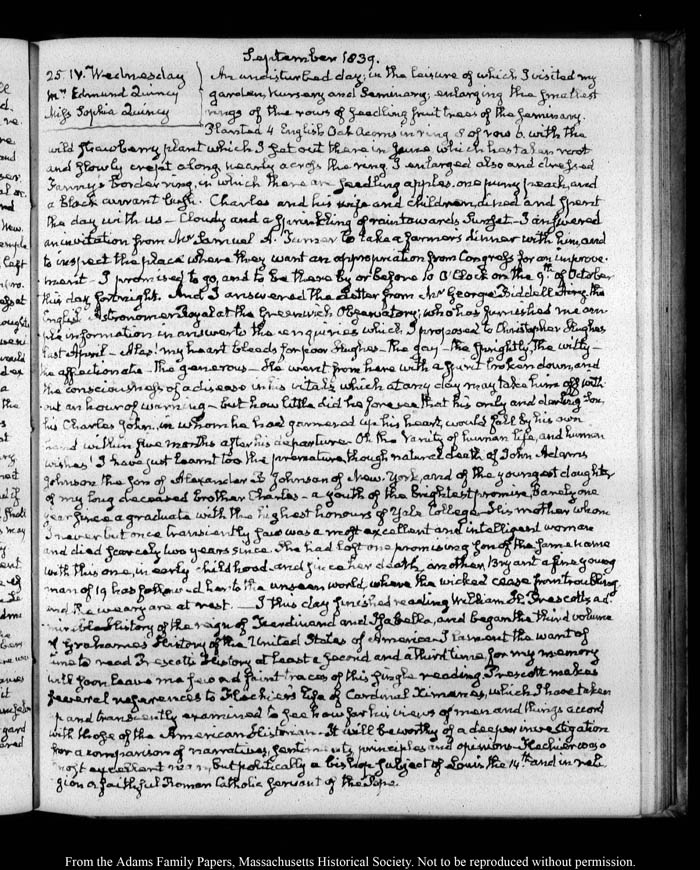 September 1839.
25. IV. Wednesday
Mrs Edmund Quincy
Miss Sophia Quincy
An undisturbed day; in the leisure of which I visited my
garden, nursery and Seminary; enlarging the smallest
rings of the rows of seedling fruit trees of the Seminary.
Planted 4 English Oak Acorns in ring 8 of row 6. with the
wild strawberry plant which I set out there in June which has taken root
and slowly crept along nearly across the ring. I enlarged also and dressed
Fanny's Border ring, in which there are seedling apples, one puny peach, and
a black currant bush. Charles and his wife and children, dined and spent
the day with us – Cloudy and a sprinkling of rain towards Sunset – I answered
an invitation from Mr Samuel A. Turner to take a farmer's dinner with him, and
to inspect the place where they want an appropriation from Congress for an improve-
ment – I promised to go, and to be there by or before 10 O'Clock on the 9th of October
this day fortnight. And I answered the Letter from Mr George Biddell Airy, the
English Astronomer Royal at the Greenwich Observatory; who has furnished me am-
ple information in answer to the enquiries which I proposed to Christopher Hughes
last April – Alas! my heart bleeds for poor Hughes – The gay – the sprightly, the witty –
the affectionate – the generous – He went from here with a spirit broken down, and
the consciousness of a disease in his vitals which at any day may take him off with-
out an hour of warning – but how little did he foresee that his only and darling Son,
his Charles John, in whom he had garnered up his heart, would fall by his own
hand within five months after his departure. Oh the Vanity of human life, and human
wishes! I have just learnt too the premature, though natural death of John Adams
Johnson the Son of Alexander B. Johnson of New-York, and of the youngest daughter
of my long deceased brother Charles – a youth of the brightest promise, Barely one
year since a graduate with the highest honours of Yale College – His mother whom
I never but once transiently saw was a most excellent and intelligent woman
and died scarcely two years since. She had lost one promising Son of the same name
with this one, in early childhood – and since her death, another, Bryant a fine young
man of 19 has followed her to the unseen world, where the wicked cease from troubling
and the weary are at rest. — I this day finished reading William H. Prescott's ad-
mirable History of the reign of Ferdinand and Isabella, and began the third volume
of Grahame's History of the United States of America. I lament the want of
time to read Prescott's History at least a second and a third time, for my memory
will soon leave me few and faint traces of this single reading. Prescott makes
several references to Flechier's Life of Cardinal Ximenes, which I have taken
up and transiently examined to see how far his views of men and things accord
with those of the American Historian. It will be worthy of a deeper investigation
for a comparison of narratives, sentiments, principles and opinions – Flechier was a
most excellent man, but politically a bishop subject of Louis the 14th and in reli-
gion a faithful Roman Catholic servant of the Pope.
From the Adams Family Papers, Massachusetts Historical Society. Not to be reproduced without permission.